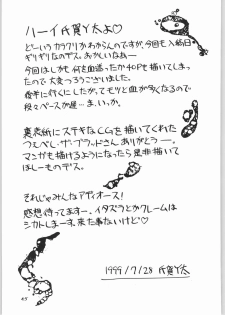 ハーイ 氏賀Y太よ♡
どーいうカラクリかわからんのですが、今回も入稿日
ギリギリなのデス。おかしいなぁ…
今回はしかも何を血迷ったか40Pも描いてしまっ
たので大変つろうございました。
後半に行くにしたがってモツと血が多くなるので
段々ペースが遅…ま、いっか。
裏表紙にステキなCGを描いてくれた
つぇぺし・ザ・ブラッドさんありがとう ー。
マンガも描けるようになったら是非描いて
ほしーものデス。
それじゃみんなアディオース!
感想待ってますー。イタズラとかクレームは
シカトしまーす。来た事ないけど♡
1999/7/28 氏賀Y太